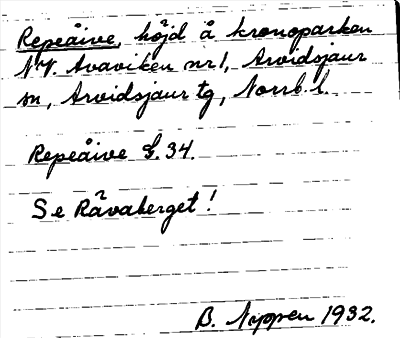 Repeåive, höjd å kronoparken
NV. Avaviken nr 1, Arvidsjaur
sn, Arvidsjaur tg, Norrb. l.
Repeåive G. 34.
Se Råvaberget!
B. Nappen 1932.